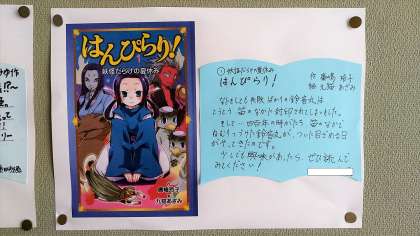 はんぴらり!
妖怪だらけの夏休み
廣嶋玲子
九猫あざみ
①妖怪だらけの夏休み
はんぴらり!
作 廣嶋 玲子
絵 九猫 あざみ
なにをしても失敗ばかりの鈴音丸は
とうとう 笛のなかに封印されてしまいました。
そして…四百年の時がたち 笛のなかで
ねむりつづけた鈴音丸が、ついに目ざめる日
がやってきたのです。
少しでも興味があったら、ぜひ読んで
みてください!